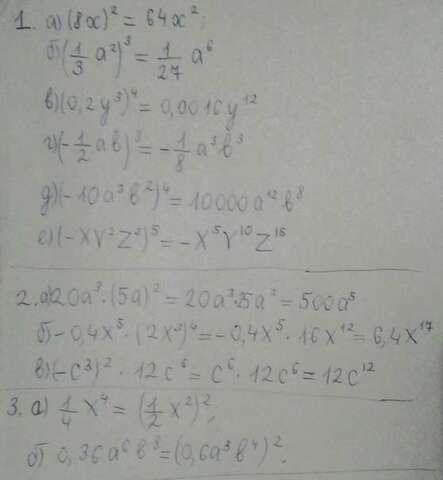 1. а) (8x)² = 64x²;
б) (1/3 a²)³ = 1/27 a⁶
в) (0,2y³)⁴ = 0,0016y¹²
г) (-1/2 ab)³ = -1/8 a³b³
д) (-10a³b²)⁴ = 10000a¹²b⁸
е) (-XY²Z³)⁵ = -X⁵Y¹⁰Z¹⁵
2. а) 20a³·(5a)² = 20a³·25a² = 500a⁵
б) -0,4x⁵·(2x³)⁴ = -0,4x⁵·16x¹² = 6,4x¹⁷
в) (-c³)²·12c⁶ = c⁶·12c⁶ = 12c¹²
3. а) 1/4 x⁴ = (1/2 x²)²;
б) 0,36a⁶b⁸ = (0,6a³b⁴)².